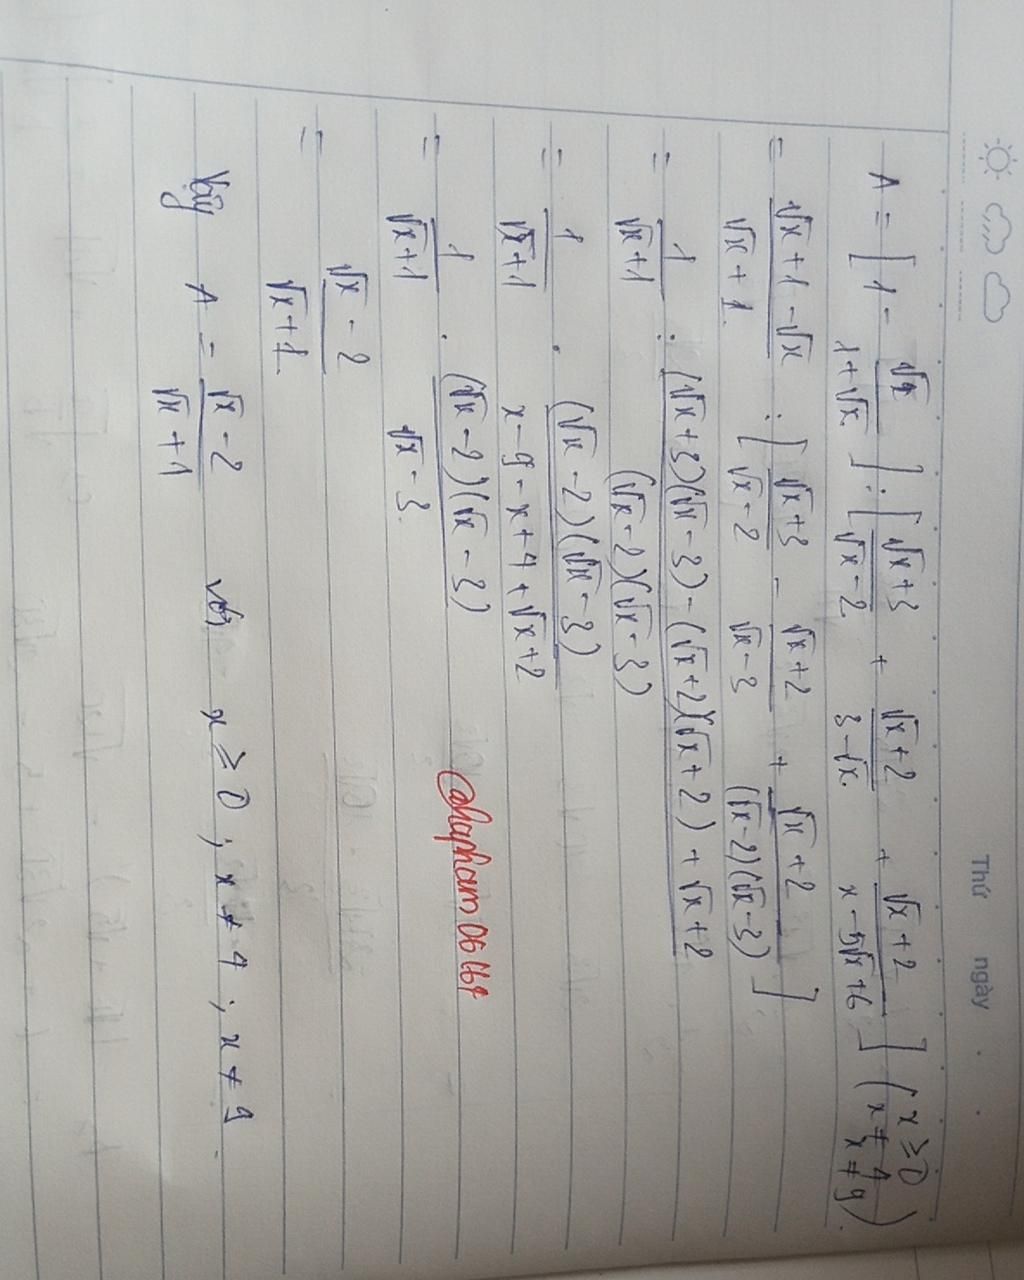 Thứ ngày
A = [1 - √x/(1+√x)] : [(√x+3)/(√x-2) + (√x+2)/(3-√x) + (√x+2)/(x-5√x+6)] (x ≥ 0 x ≠ 4 x ≠ 9)
= (√x+1-√x)/(√x+1) : [(√x+3)/(√x-2) - (√x+2)/(√x-3) + (√x+2)/((√x-2)(√x-3))]
= 1/(√x+1) : ((√x+3)(√x-3)-(√x+2)(√x+2)+√x+2)/((√x-2)(√x-3))
= 1/(√x+1) . ((√x-2)(√x-3))/(x-9-x+4+√x+2)
= 1/(√x+1) . ((√x-2)(√x-3))/(√x-3)
= (√x-2)/(√x+1)
@hapham06
Vậy A = (√x-2)/(√x+1) với x ≥ 0 ; x ≠ 4 ; x ≠ 9.